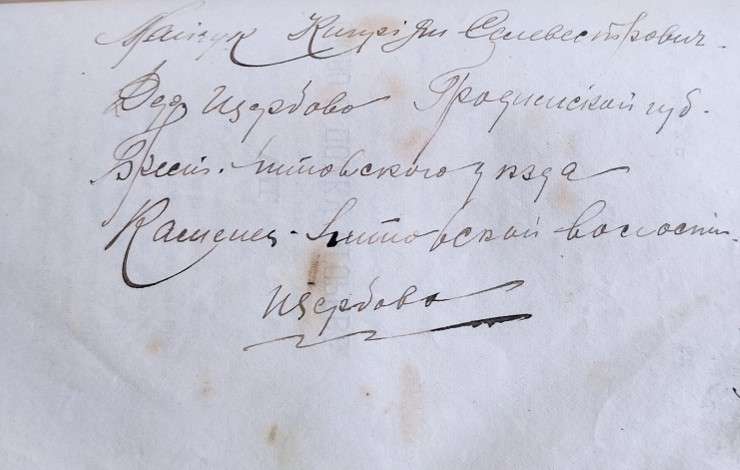 Майчук Кипріян Селевестрович.
Дер. Щербово Гродненской губ.
Брест. Литовского уѣзда
Каменец-Литовской волости.
Щербово